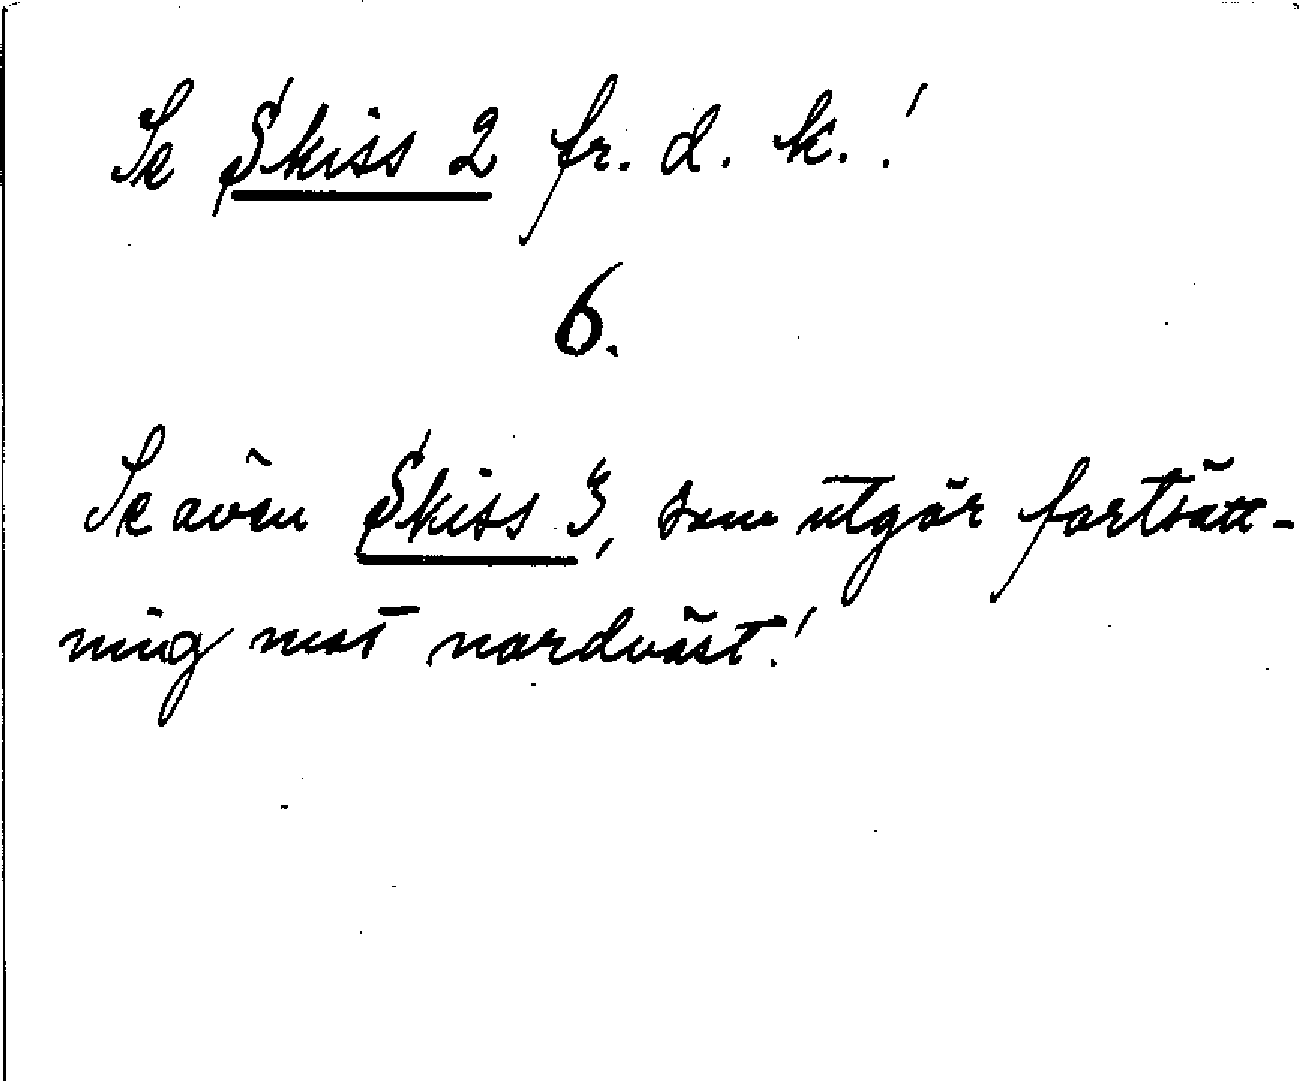 Se Skiss 2 fr. d. k.!
6.
Se även Skiss 3, som utgör fortsätt-
ning mot nordväst!